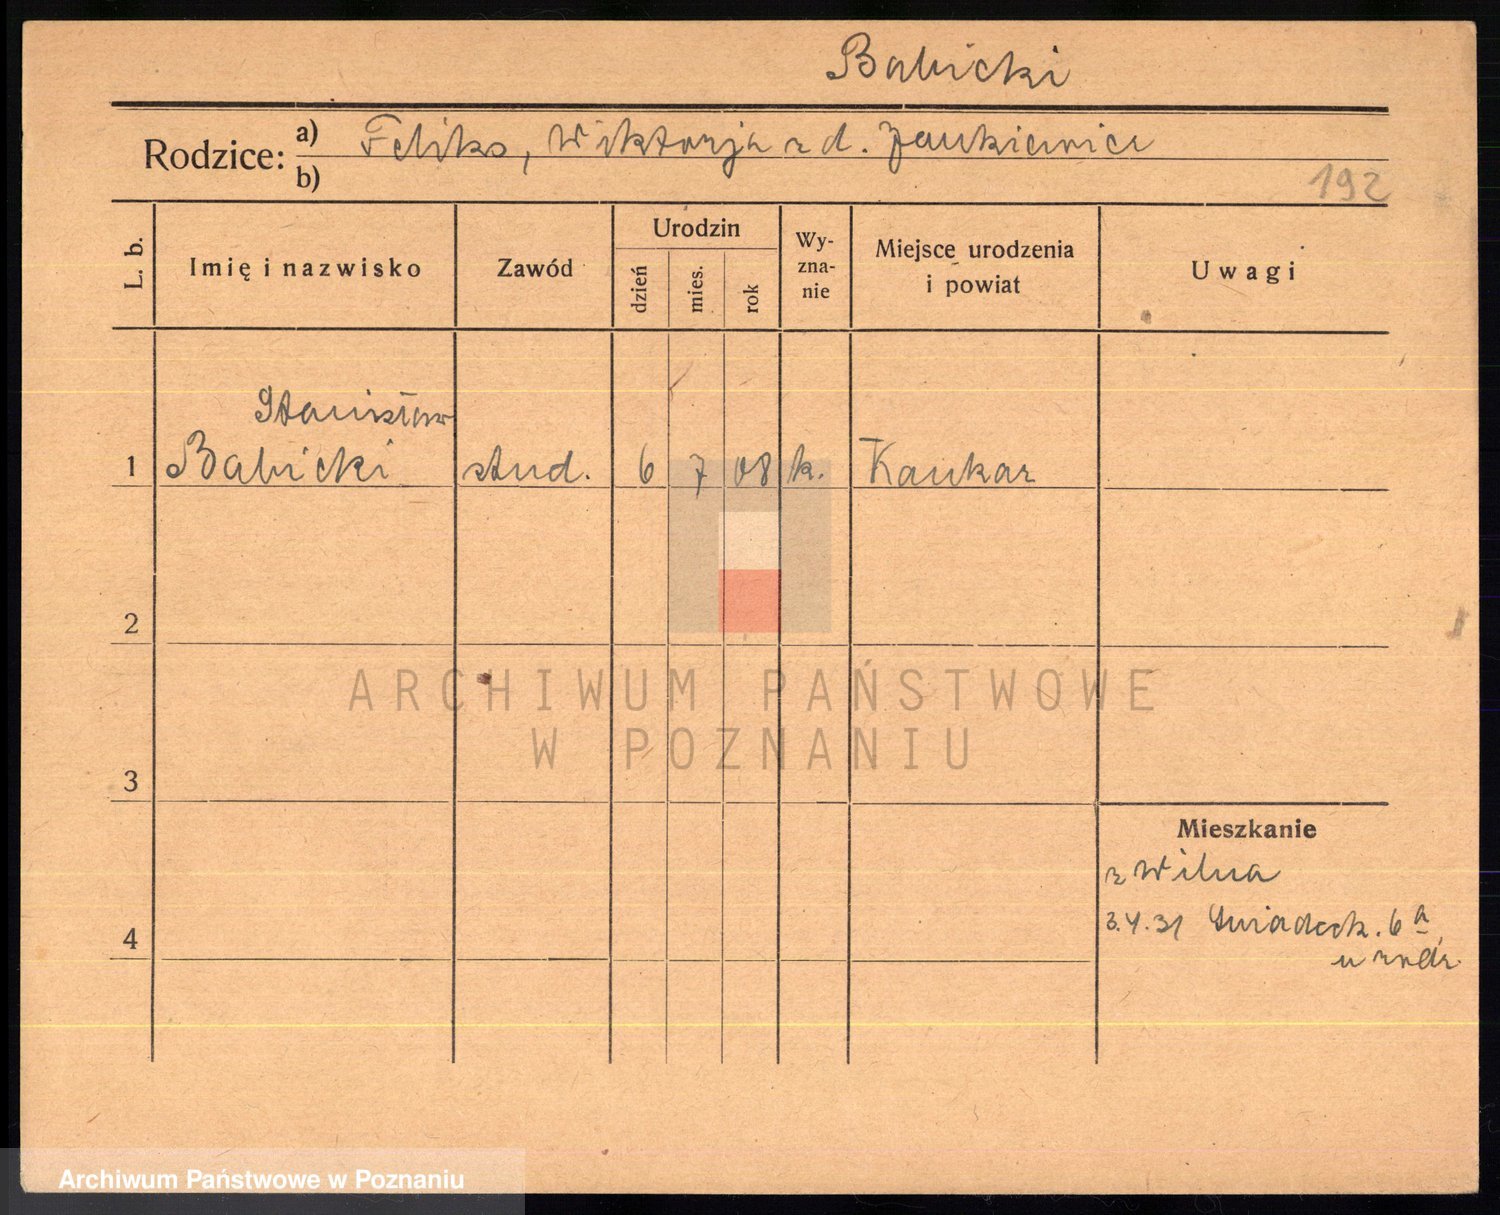 Babicki
Rodzice: a) Feliks, Wiktorja z d. Jankiewicz
b)
192
L. b.
Imię i nazwisko
Zawód
Urodzin
dzień
mies.
rok
Wy-
zna-
nie
Miejsce urodzenia
i powiat
Uwagi
Stanisław
1 Babicki stud. 6 7 08 k. Kaukaz
2
3
4
Mieszkanie
z Wilna
3.4.31 6a
ARCHIWUM PAŃSTWOWE
W POZNANIU
Archiwum Państwowe w Poznaniu